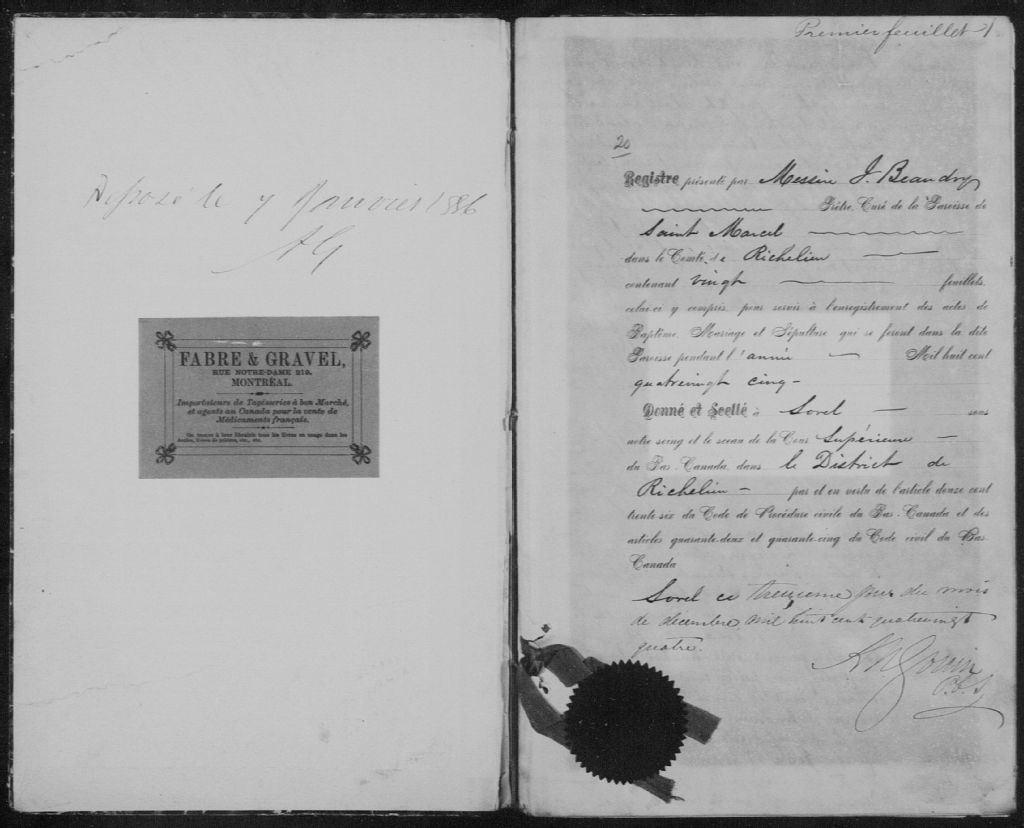 Déposé le 7 Janvier 1886
AG
FABRE & GRAVEL,
RUE NOTRE-DAME 219.
MONTRÉAL.
Importateurs de Tapisseries à bon Marché,
et agents au Canada pour la vente de
Médicaments français.
On trouve à leur librairie tous les livres en usage dans les
écoles, livres de prières, etc., etc.
Premier feuillet 1
20
Registre présenté par Messire J. Beaudry
Prêtre, Curé de la Paroisse de
Saint Marcel
dans le Comté de Richelieu
contenant vingt feuillets,
celui-ci y compris, pour servir à l'enregistrement des actes de
Baptême, Mariage et Sépulture qui se feront dans la dite
Paroisse pendant l'année Mil huit cent
quatrevingt cinq -
Donné et Scellé à Sorel - sous
notre seing et le sceau de la Cour Supérieure -
du Bas-Canada, dans le District de
Richelieu - par et en vertu de l'article douze cent
trente-six du Code de Procédure civile du Bas-Canada et des
articles quarante-deux et quarante-cinq du Code civil du Bas-
Canada
Sorel ce treizieme jour du mois
de décembre mil huit cent quatrevingt
quatre.
A N Gouin
P.C.S.